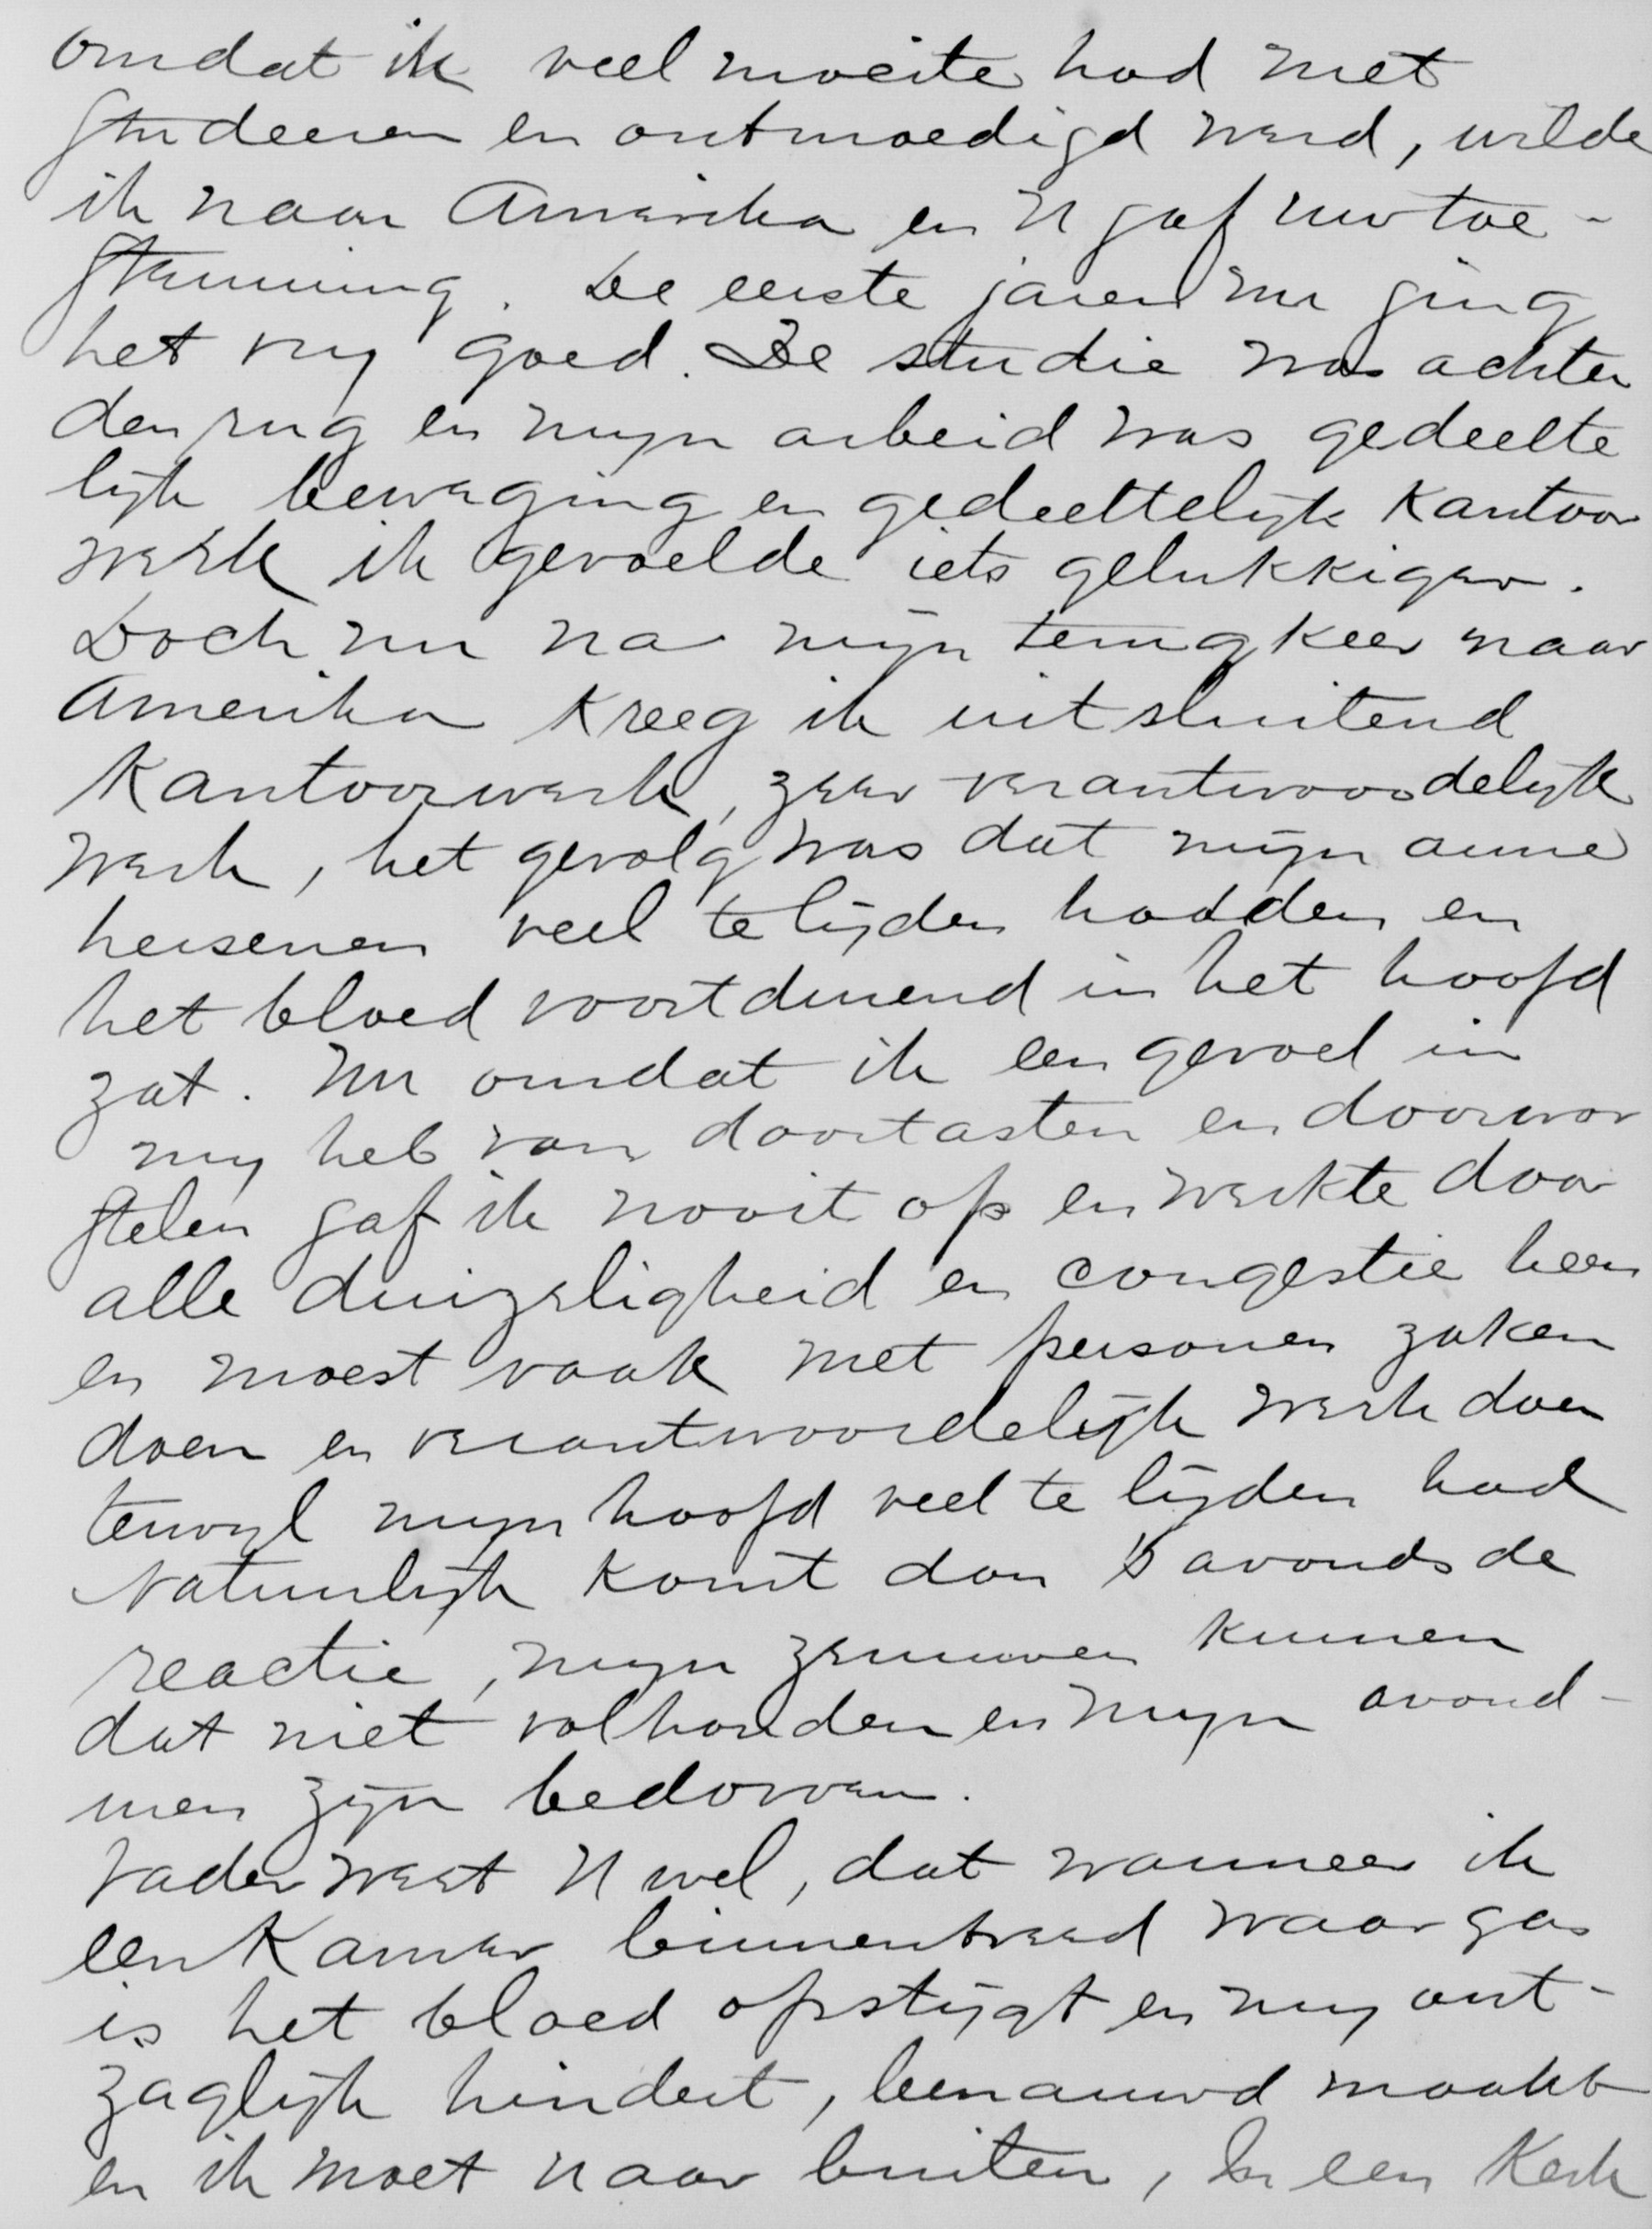 omdat ik veel moeite had met
studeeren en ontmoedigd werd, wilde
ik naar Amerika en U gaf uw toe-
stemming. De eerste jaren nu ging
het my goed. De studie was achter
den rug en myn arbeid was gedeelte
lijk beweging en gedeeltelijk Kantoor
werk ik gevoelde iets gelukkiger.
Doch nu na mijn terugkeer naar
Amerika kreeg ik uitsluitend
Kantoorwerk, zeer verantwoordelijk
werk, het gevolg was dat mijn arme
hersenen veel te lijden hadden en
het bloed voortdurend in het hoofd
zat. Nu omdat ik een gevoel in
my heb van doortasten en doorwor
stelen gaf ik nooit op en werkte door
alle duizeligheid en congestie heen
en moest vaak met personen zaken
doen en verantwoordelijk werk doen
terwyl myn hoofd veel te lijden had
Natuurlijk komt dan 's avonds de
reactie, myn zenuwen kunnen
dat niet volhouden en myn avond-
uren zijn bedorven.
Vader weet U wel, dat wanneer ik
een Kamer binnentreed waar gas
is het bloed opstijgt en my ont-
zaglijk hindert, benauwd maakt
en ik moet naar buiten, In een Kerk